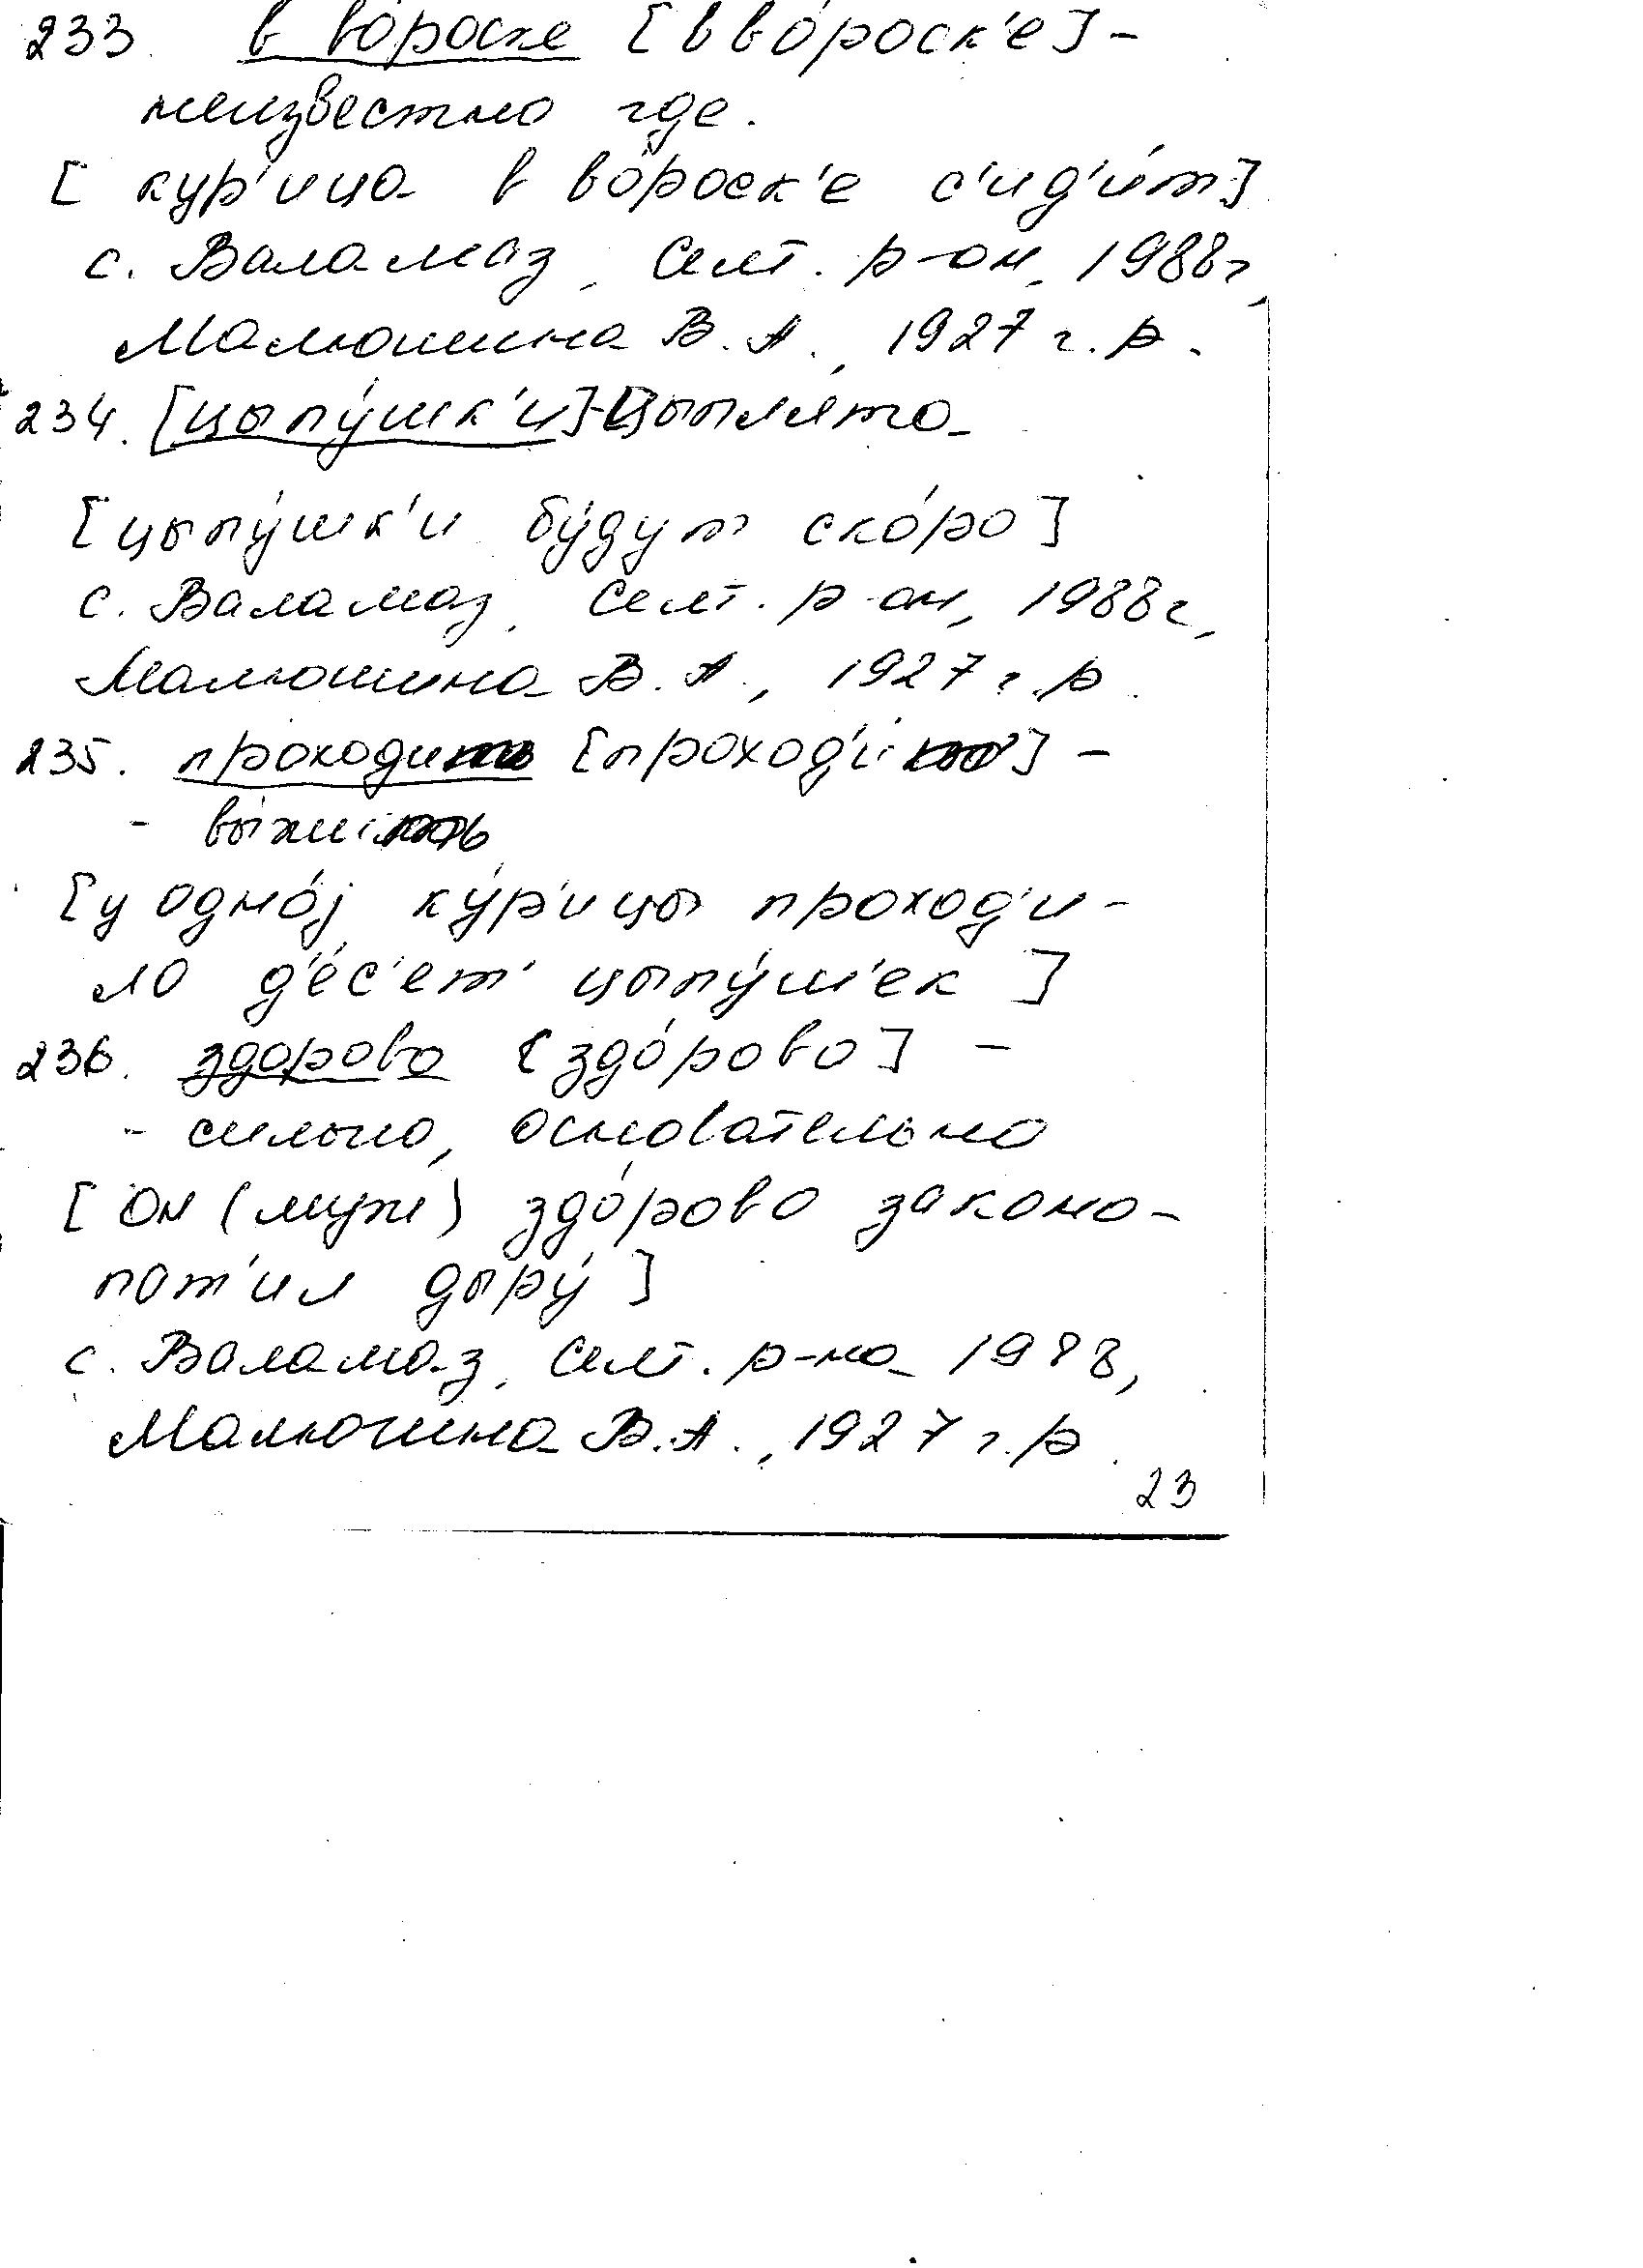 233. в во́роске [в во́роск'е] -
неизвестно где.
[кур'ица в во́роск'е с'ид'и́т]
с. Валамаз, Селт. р-он, 1988г,
Малюшина В.А., 1927 г.р.
234. [цыпу́шк'и]-цыплята
[цыпу́шк'и бу́дут ско́ро]
с. Валамаз, Селт. р-он, 1988г,
Малюшина В.А., 1927 г.р.
235. проходить [проход'и́т'] -
- выжить
[у одно́j ку́р'ицы проход'и-
ло д'е́с'ет' цыпу́шек]
236. здорово [здо́рово] -
- сильно, основательно
[он (муж) здо́рово законо-
пат'ил дыру́]
с. Валамаз, Селт. р-на 1988,
Малюшина В.А., 1927 г.р.
23